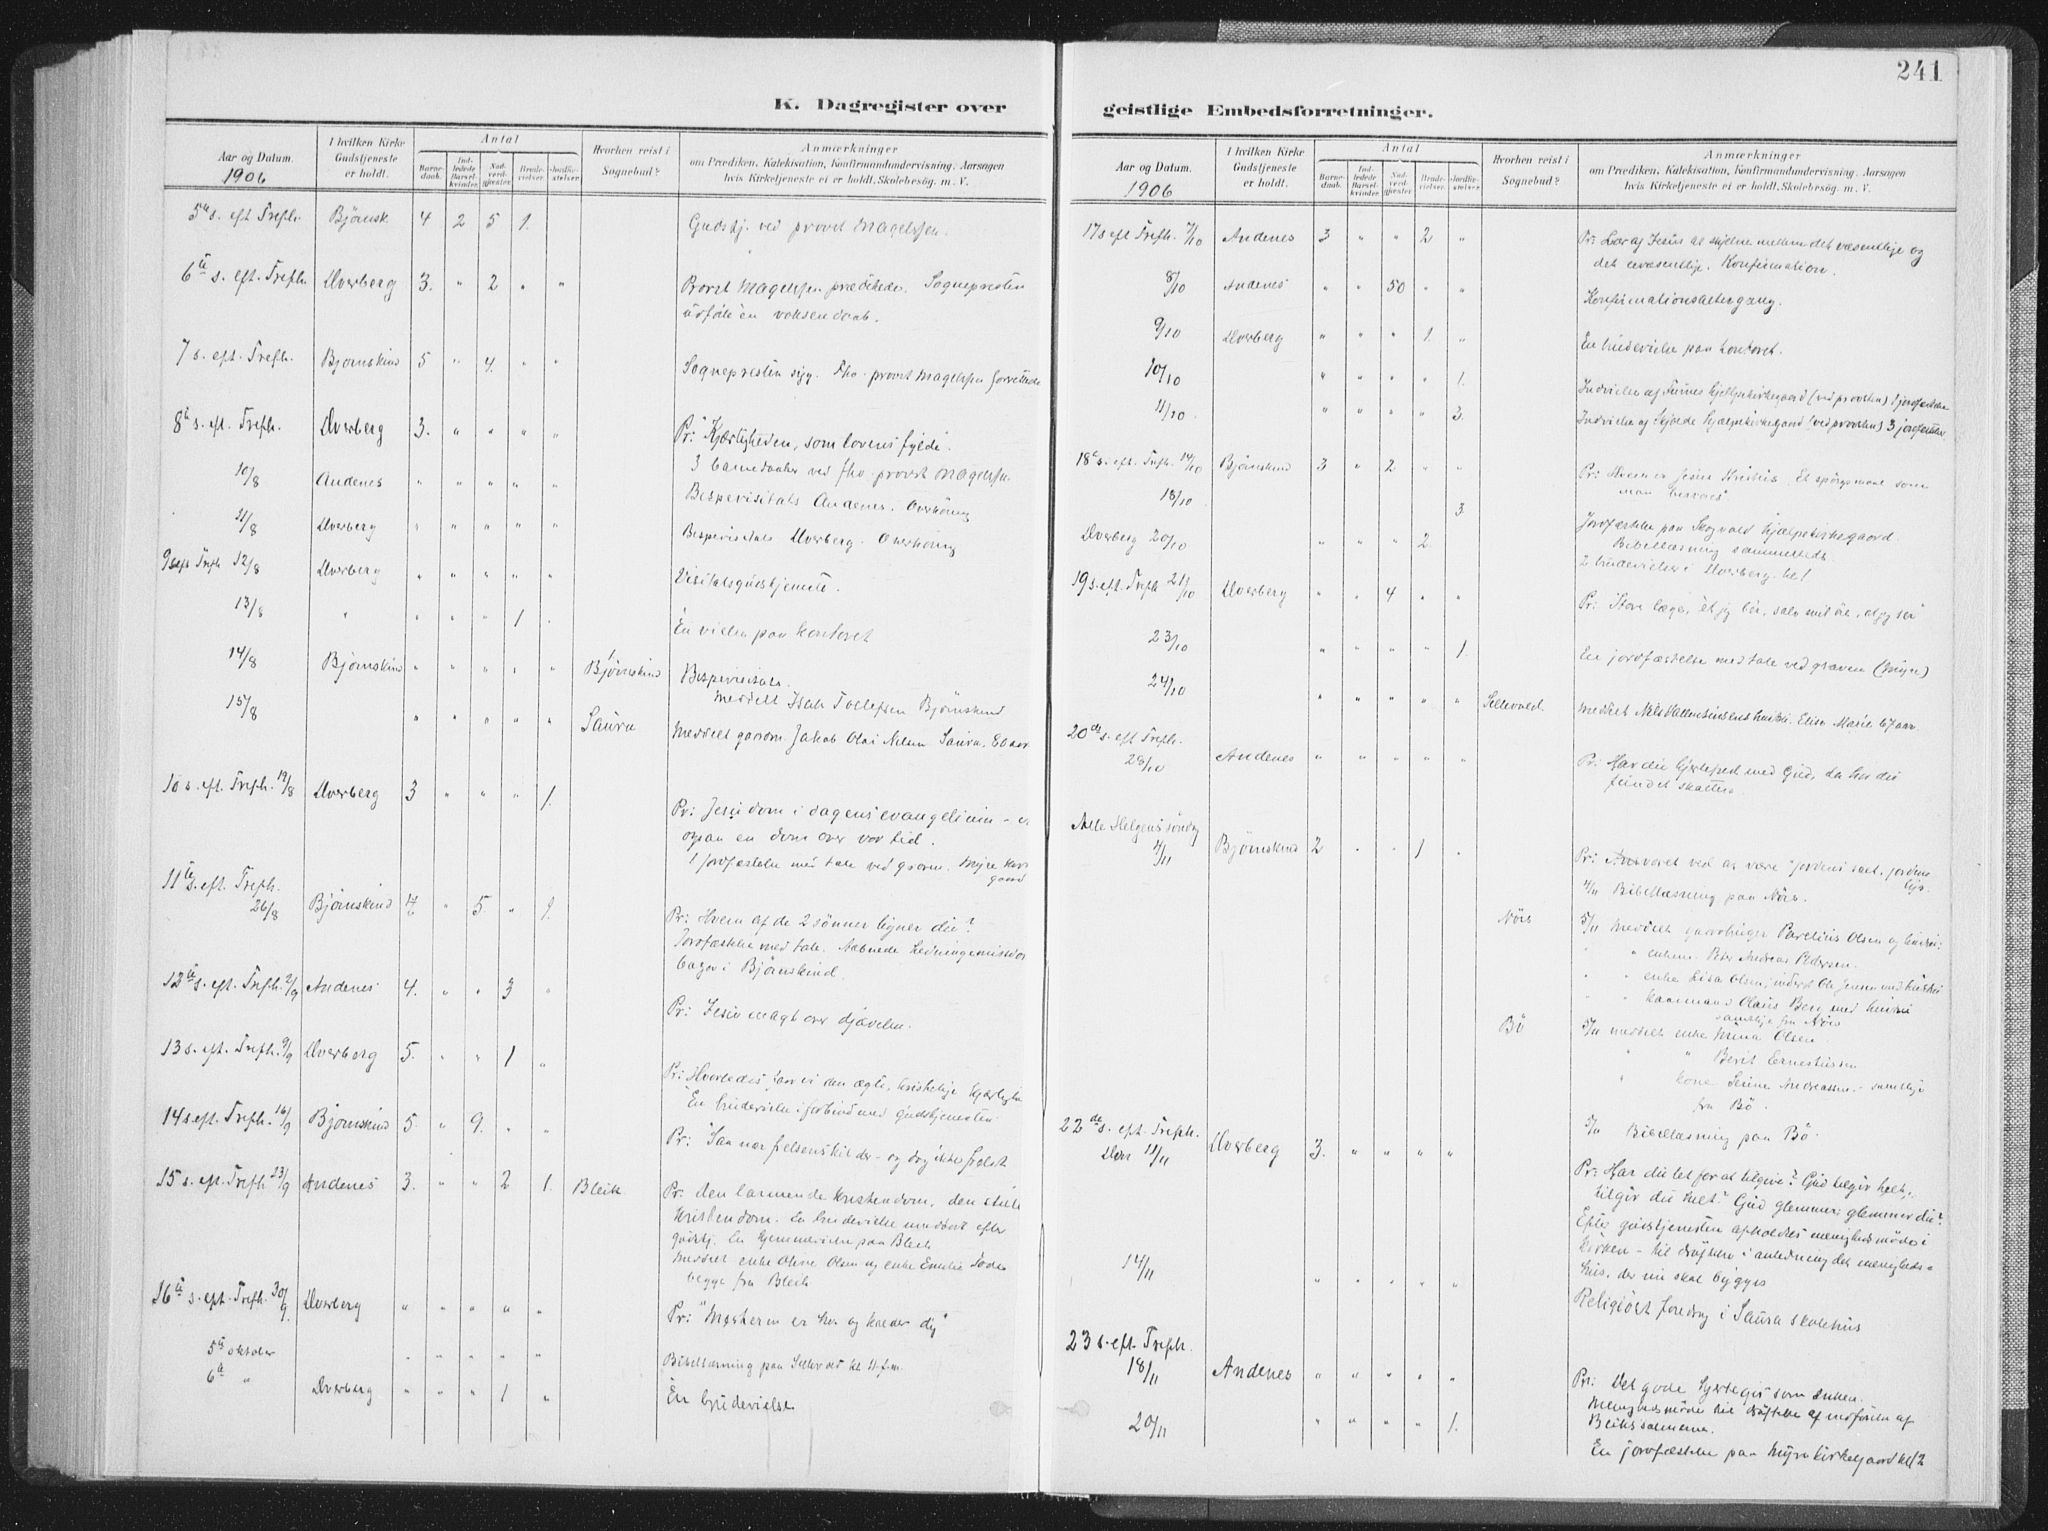 241
K. Dagregister over
Aar og Datum.
1906
I hvilken Kirke Gudstjeneste er holdt.
Antal
Barnedaab.
Indledede Barselkvinder.
Nadverdgjester
Brudevielser.
Jordfæstelser.
Hvorhen reist i Sognebud?
Anmærkninger
om Prædiken, Katekisation, Konfirmandundervisning, Aarsagen
hvis Kirketjeneste ei er holdt, Skolebesøg. m. V.
5te s. eft Trefh. Bjørnsk 4 2 5 1. Gudstj. ved provst Magelssen.
6te s. eft. Trefh. Dverberg 3. " 2 " " Provst Magelssen prædikede. Sognepresten
udførte en voksendaab.
7 s. eft. Trefh. Bjørnskind 5 " 4. " " Sognepresten syg. Fho. provst Magelssen forrettede
8de s. eft. Trefh. Dverberg 3. " " " " Pr: "Kjærligheden, som lovens fylde".
3 barnedaaber ved fho. provst Magelssen.
10/8 Andenes " " " " " Bispevisitats Andenes. Overhøring
11/8 Dverberg " " " " " Bispevisitats Dverberg. Overhøring
9 s eft Trefh 12/8 Dverberg " " " " " Visitatsgudstjeneste.
13/8 " " " " 1 " En vielse paa kontoret
14/8 Bjørnskind " " " " " Bjørnskind Bispevisitats.
Meddelt Isak Tollefsen Bjørnskind
15/8 " " " " " Saura Meddelt gaardm. Jakob Olai Nilsen Saura, 80 aar
10 s. eft. Trefh. 19/8 Dverberg 3 " " " 1. Pr: Jesu dom i dagens evangelium -
ogsaa en dom over vor tid.
1 jordfæstelse med tale ved graven. Myre kirkegaard
11te s. eft. Trefh.
26/8 Bjørnskind 4 " 5 " 1. Pr: Hvem af de 2 sønner ligner du?
Jordfæstelse med tale. Aabnede hedningemissions
bazar i Bjørnskind.
12te s. eft. Trefh. 2/9 Andenes 4. " " 3 " Pr: Jesu magt over djævelen.
13 s. eft. Trefh. 9/9 Dverberg 5. " " 1 " Pr: Hvorledes faar vi den ægte, kristelige kjærlighed
En brudevielse i forbind. med gudstjenesten
14 s. eft. Trefh. 16/9 Bjørnskind 5 " 9. " " Pr: "Saa nær frelsens kilder - og dog ikke frelst
15 s. eft. Trefh 23/9 Andenes 3. " " 2 1. Bleik Pr: den larmende kristendom, den stille
kristendom. En brudevielse umiddelb. efter
gudstj. En hjemmevielse paa Bleik
Meddelt enke Olive Olsen og enke Emelie
begge fra Bleik
16te s. eft. Trefh. 30/9. Dverberg " " " " " Pr: "Mesteren er her og kalder dig"
5te oktober " " " " " Bibellæsning paa Selvold kl. 11 f.m.
6te " Dverberg " " " 1 " En brudevielse
geistlige Embedsforretninger.
Aar og Datum.
1906
I hvilken Kirke Gudstjeneste er holdt.
Antal
Barnedaab.
Indledede Barselkvinder.
Nadverdgjester
Brudevielser.
Jordfæstelser.
Hvorhen reist i Sognebud?
Anmærkninger
om Prædiken, Katekisation, Konfirmandundervisning, Aarsagen
hvis Kirketjeneste ei er holdt, Skolebesøg. m. V.
17 s eft Trefh. 7/10 Andenes 3 " " 2 " Pr: Lær af Jesus at skjelne mellem det væsentlige og
det uvæsentlige. Konfirmation.
8/10 Andenes " " 50 " " Konfirmationsaltergang.
9/10 Dverberg " " " 1. " En brudevielse paa kontoret.
10/10 " " " " 1. Indvielse af Furnes hjelpekirkegaard (ved provsten) 1 jordfæstelse
11/10 " " " " 3. Indvielse af Skjolde hjælpekirkegaard (ved provsten) 3 jordfæstelser
18de s. eft. Trefh. 14/10 Bjørnskind 3 " 2 " " Pr: Hvem er Jesus Kristus. Et spørgsmaal som
man besvares"
18/10 3 Jordfæstelse paa Skogvold hjælpekirkegaard.
Bibellæsning sammesteds
Dverberg 20/10 " " " 2 2 brudevielser i Dverberg kl 1
19 s. eft. Trefh 21/10 Dverberg " " 4 " " Pr: Store læge,
23/10 " " " " 1. En jordfæstelse med tale ved graven (Myre)
24/10 " " " " " Selvold. Meddelt Nils Vallentinsens hustru Elise Marie 67 aar
20de s. eft Trefh.
28/10 Andenes " " " " " Pr: Har du hjertefred med Gud, da har du
fundet skatten
Alle Helgens søndag
4/11 Bjørnskind 2 " " 1 " Pr: Ansvaret ved at være "jordens salt, jordens lys".
4/11 Bibellæsning paa Nøis.
Nøis 5/11 Meddelt gaardbruger Parelius Olsen og hustru
" " enkem. Peter Andreas Pedersen.
" " enke Lisa Olsen, inderst Ole Jensen med hustru
" " kaarmand Olaus Berg med hustru
samtlige fra Nøis
Bø 5/11 meddelt enke Mina Olsen
" " Berit Ernestussen
" kone Sesine Andreassen - samtlige
fra Bø.
5/11 Bibellæsning paa Bø.
22de s. eft. Trefh.
Den 11/11 Dverberg 3. " " " " Pr: Har du let for at tilgive? Gud tilgir helt,
tilgir du helt? Gud glemmer; glemmer du?
Efter gudstjenesten afholdtes menighedsmøde i
Kirken - til drøftelse i anledning det menigheds=
hus, der nu skal bygges
14/11 " " " " " Religiøst foredrag i Saura skolehus
23 s. eft. Trefh.
18/11 Andenes " " " " " Pr: Det gode
Menighedsmøde til drøftelse af indførelse af
Bliks salmerne.
20/11 " " " " 1. En jordfæstelse paa Myre kirkegaard kl 12